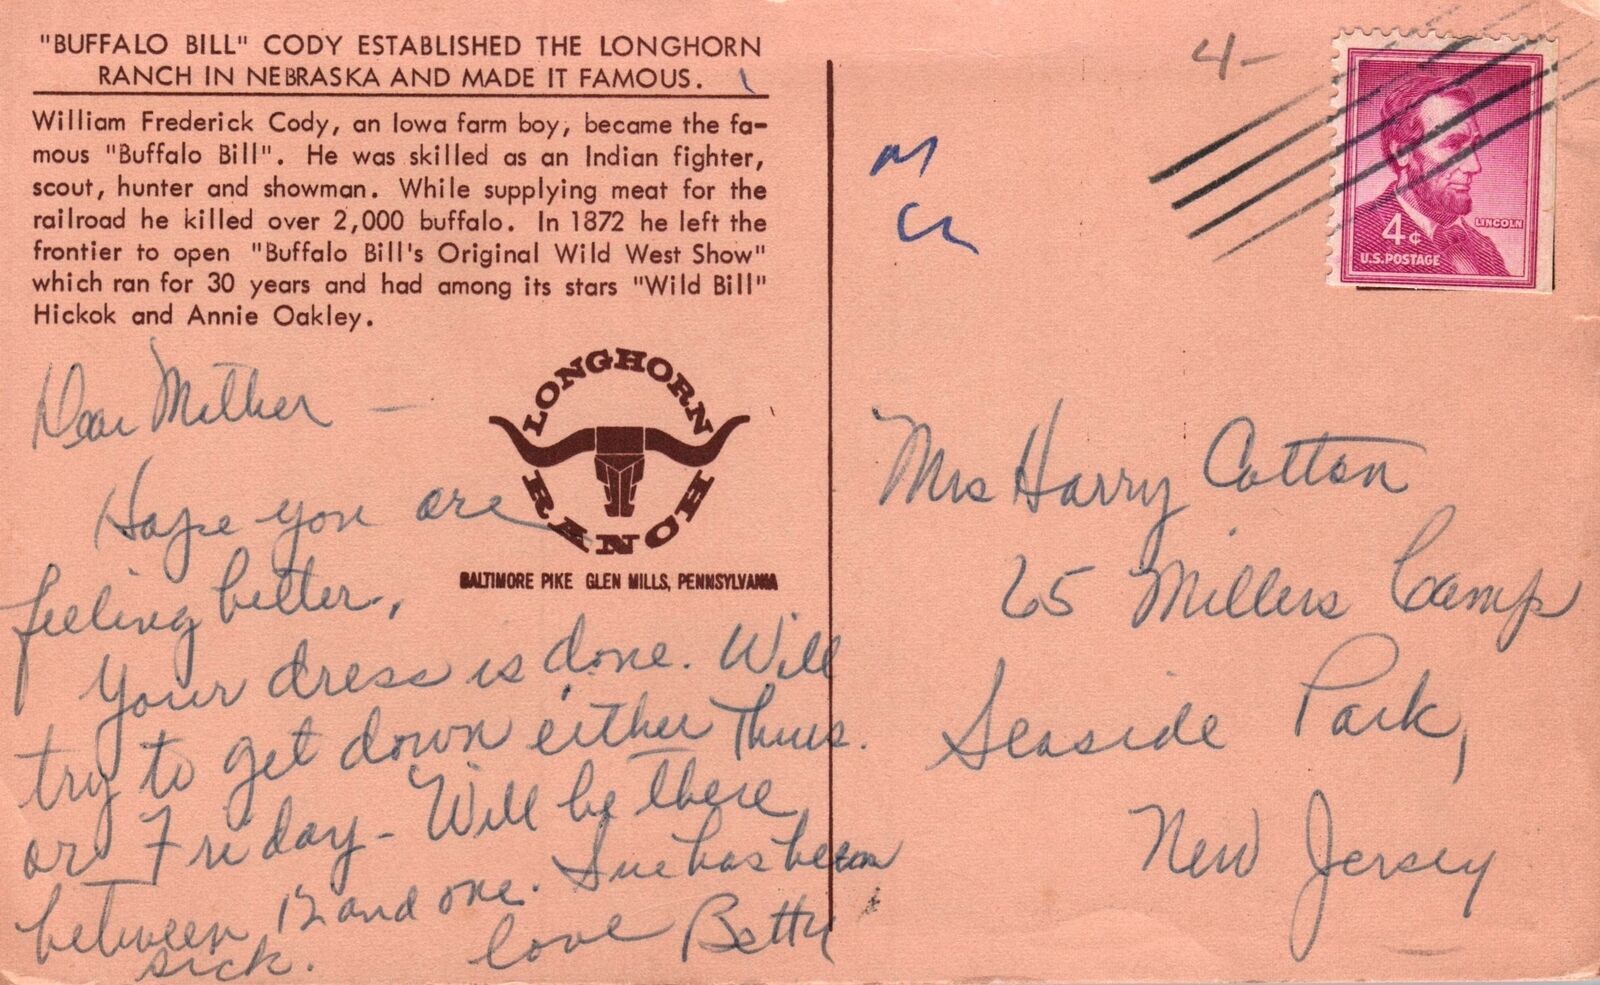 "BUFFALO BILL" CODY ESTABLISHED THE LONGHORN
RANCH IN NEBRASKA AND MADE IT FAMOUS.
William Frederick Cody, an Iowa farm boy, became the fa-
mous "Buffalo Bill". He was skilled as an Indian fighter,
scout, hunter and showman. While supplying meat for the
railroad he killed over 2,000 buffalo. In 1872 he left the
frontier to open "Buffalo Bill's Original Wild West Show"
which ran for 30 years and had among its stars "Wild Bill"
Hickok and Annie Oakley.
LONGHORN
RANCH
BALTIMORE PIKE GLEN MILLS, PENNSYLVANIA
Dear Mother -
Hope you are
feeling better.
Your dress is done. Will
try to get down either Thurs.
or Friday - Will be there
between 12 and one. Sue has been
sick. Love Betty
4-
LINCOLN
4¢
U.S. POSTAGE
Mrs Harry Cotton
25 Millers Camp
Seaside Park,
New Jersey